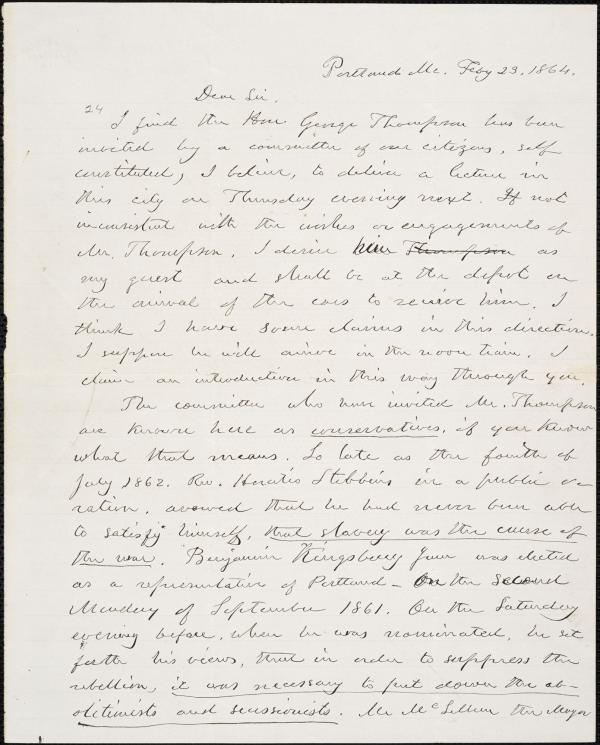 Portland Me. Feby 23. 1864.
Dear Sir.
24
I find the Hon George Thompson has been
invited by a committee of our citizens, self
constituted, I believe, to deliver a lecture in
this city on Thursday evening next. If not
inconsistent with the wishes or engagements of
Mr. Thompson, I desire him Thompson as
my guest and shall be at the depot on
the arrival of the cars to receive him. I
think I have some claims in this direction.
I suppose he will arrive in the noon train. I
claim an introduction in this way through you.
The committee who have invited Mr. Thompson
are known here as conservatives, if you know
what that means. So late as the fourth of
July 1862. Rev. Horatio Stebbins in a public o-
ration, avowed that he had never been able
to satisfy himself, that slavery was the cause of
the war. Benjamin Kingsbury Junr was elected
as a representative of Portland - On the second
Monday of September 1861. On the Saturday
evening before, when he was nominated, he set
forth his views, that in order to suppress the
rebellion, it was necessary to put down the ab-
olitionists and secessionists. Mr McLellan the Mayor